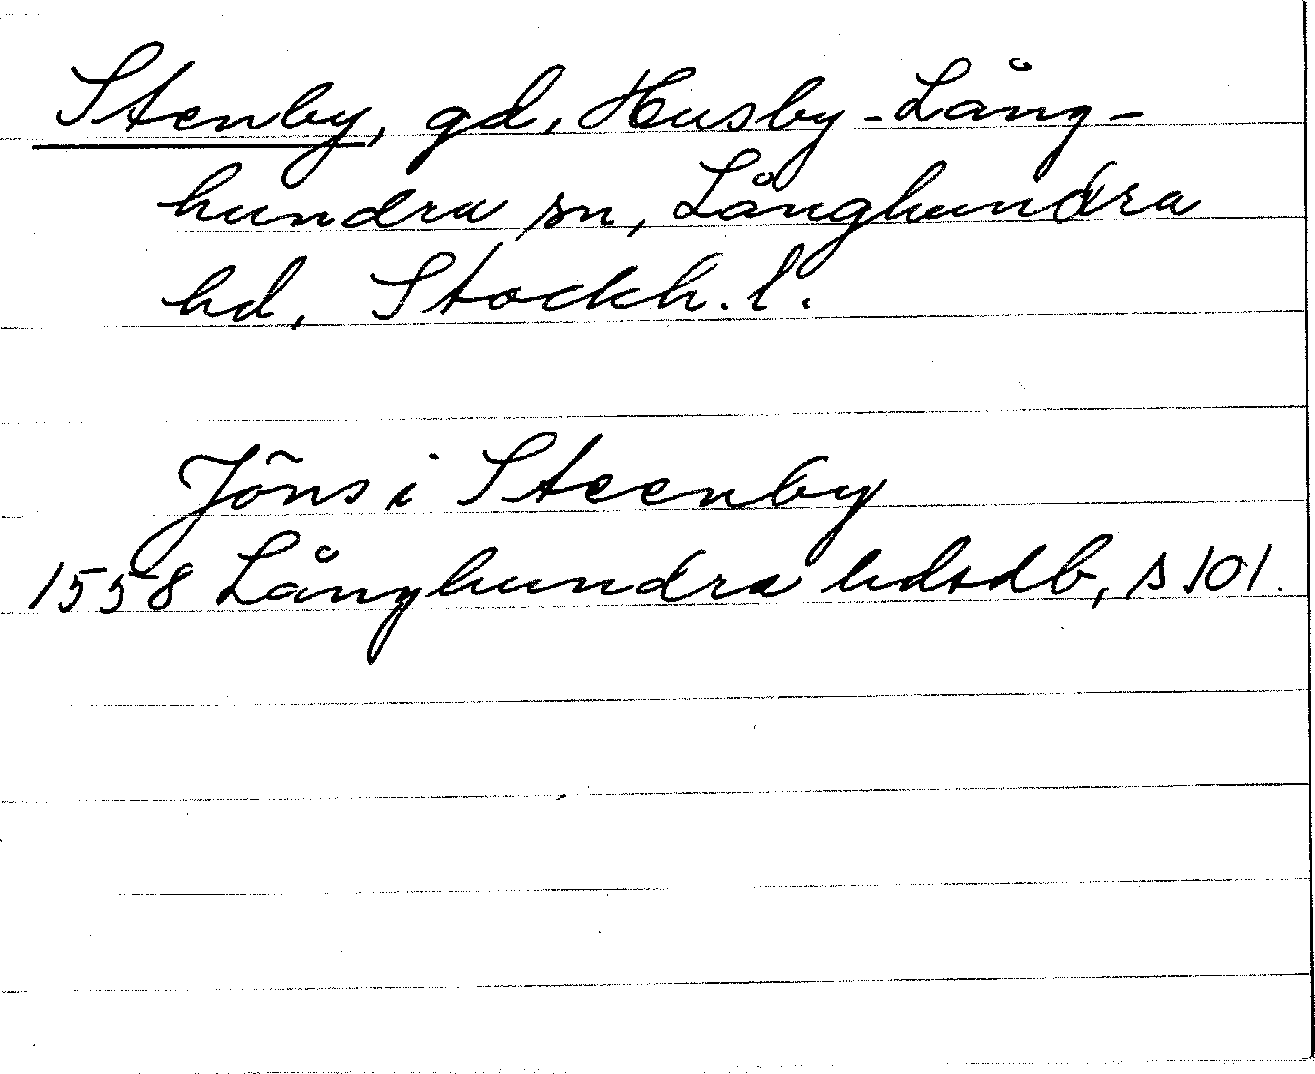 Stenby, gd, Husby-Lång-
hundra sn, Långhundra
hd, Stockh. l.
Jöns i Steenby
1558 Långhundra hdsdb, s 101.